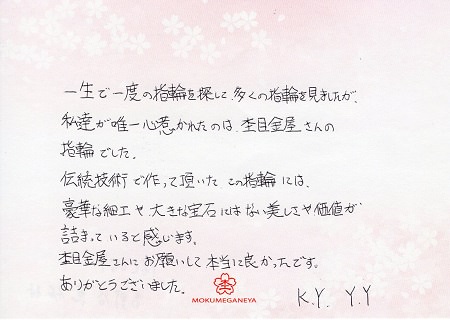 一生で一度の指輪を探して、多くの指輪を見ましたが、
私達が唯一心惹かれたのは、杢目金屋さんの
指輪でした。
伝統技術で作って頂いた この指輪には、
豪華な細工や大きな宝石にはない美しさや価値が
詰まっていると感じます。
杢目金屋さんにお願いして本当に良かったです。
ありがとうございました。
K.Y. Y.Y
杢
MOKUMEGANEYA